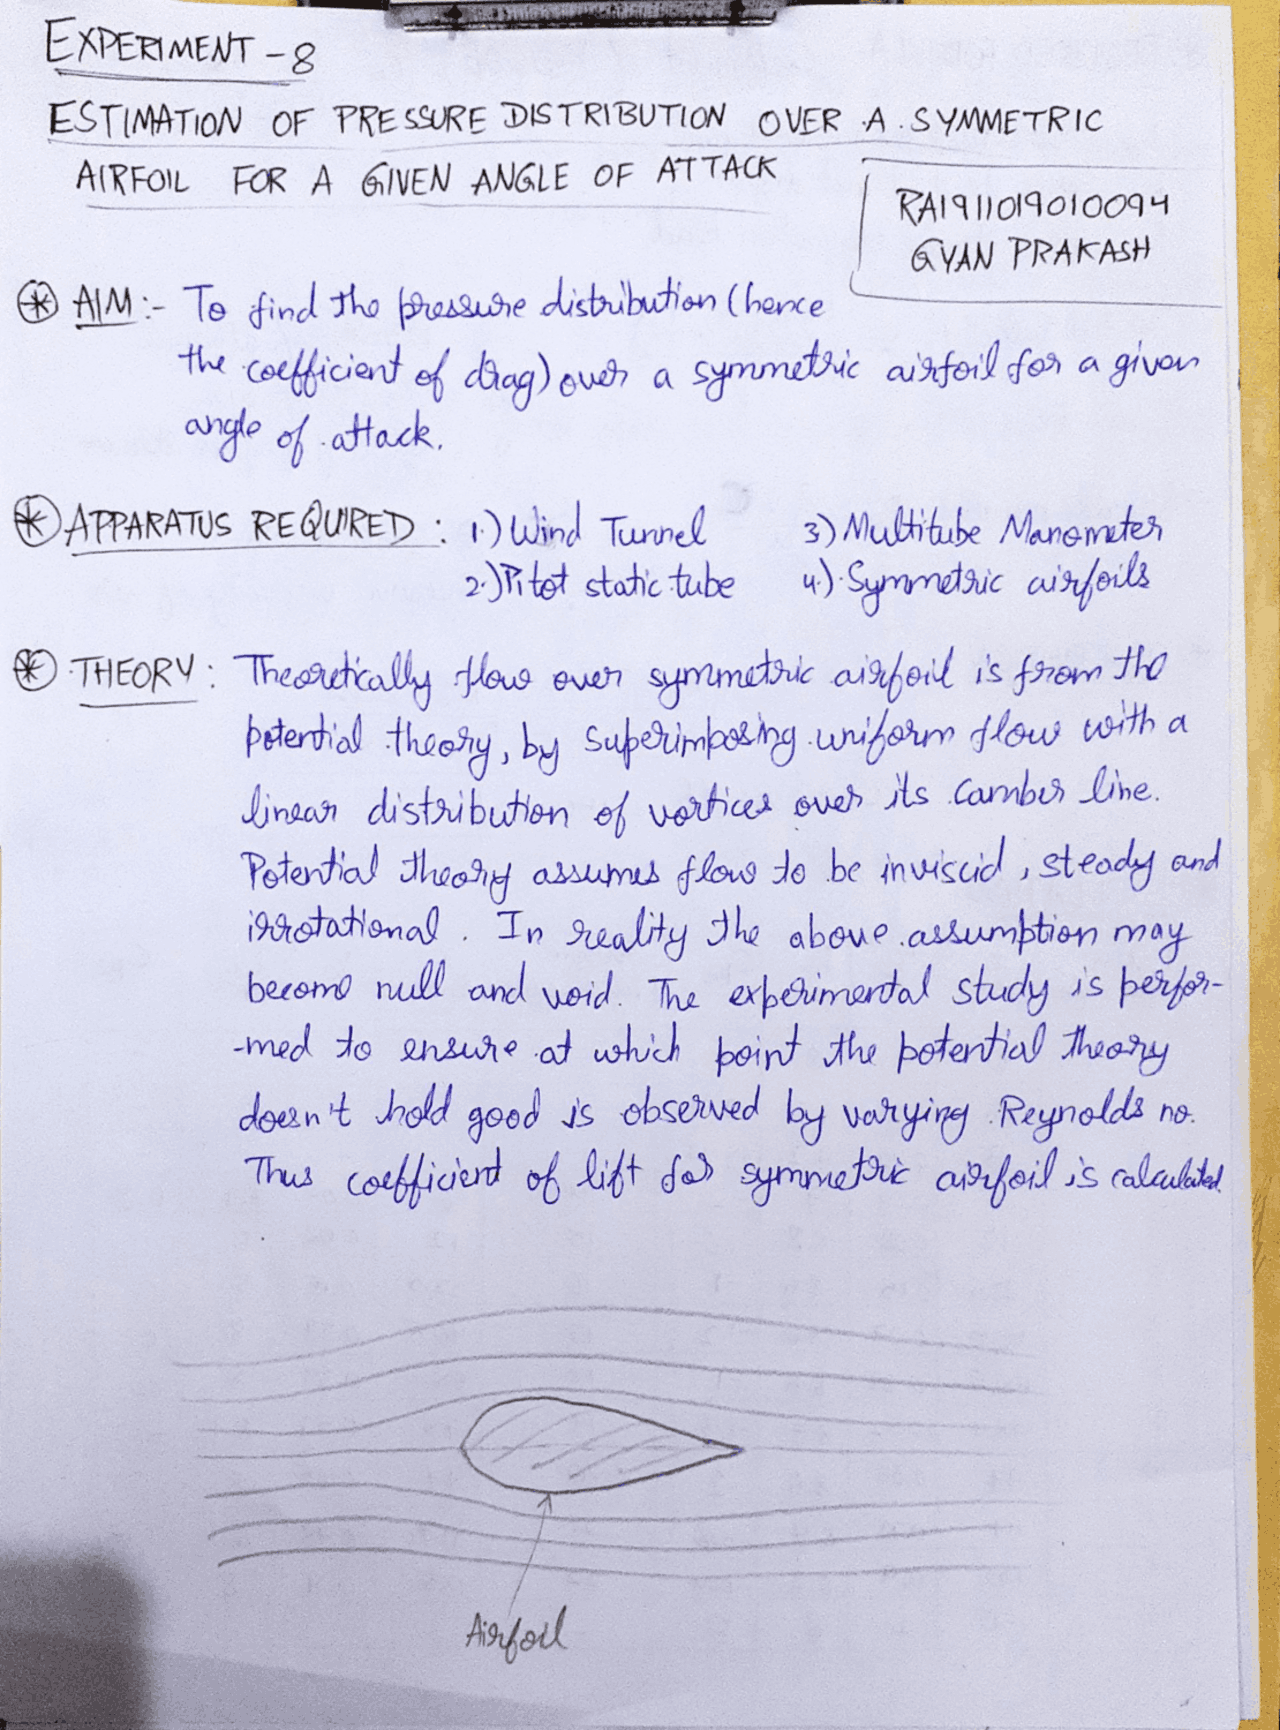 EXPERIMENT - 8
ESTIMATION OF PRESSURE DISTRIBUTION OVER A SYMMETRIC
AIRFOIL FOR A GIVEN ANGLE OF ATTACK
RA1911019010094
GYAN PRAKASH
AIM :- To find the pressure distribution (hence
the coefficient of drag) over a symmetric airfoil for a given
angle of attack.
APPARATUS REQUIRED : 1.) Wind Tunnel 3) Multitube Manometer
2.) Pitot static tube 4.) Symmetric airfoils
THEORY : Theoretically flow over symmetric airfoil is from the
potential theory, by superimposing uniform flow with a
linear distribution of vortices over its camber line.
Potential theory assumes flow to be inviscid, steady and
irrotational. In reality the above assumption may
become null and void. The experimental study is perfor-
-med to ensure at which point the potential theory
doesn't hold good is observed by varying Reynolds no.
Thus coefficient of lift for symmetric airfoil is calculated
Airfoil